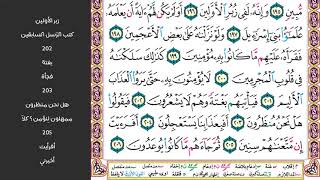 مُّبِينٍ ١٩٥ وَإِنَّهُۥ لَفِى زُبُرِ ٱلْأَوَّلِينَ ١٩٦ أَوَلَمْ يَكُن لَّهُمْ ءَايَةً أَن يَعْلَمَهُۥ
عُلَمَٰٓؤُا۟ بَنِىٓ إِسْرَٰٓءِيلَ ١٩٧ وَلَوْ نَزَّلْنَٰهُ عَلَىٰ بَعْضِ ٱلْأَعْجَمِينَ ١٩٨
فَقَرَأَهُۥ عَلَيْهِم مَّا كَانُوا۟ بِهِۦ مُؤْمِنِينَ ١٩٩ كَذَٰلِكَ سَلَكْنَٰهُ
فِى قُلُوبِ ٱلْمُجْرِمِينَ ٢٠٠ لَا يُؤْمِنُونَ بِهِۦ حَتَّىٰ يَرَوُا۟ ٱلْعَذَابَ
ٱلْأَلِيمَ ٢٠١ فَيَأْتِيَهُم بَغْتَةً وَهُمْ لَا يَشْعُرُونَ ٢٠٢ فَيَقُولُوا۟
هَلْ نَحْنُ مُنظَرُونَ ٢٠٣ أَفَبِعَذَابِنَا يَسْتَعْجِلُونَ ٢٠٤ أَفَرَءَيْتَ
إِن مَّتَّعْنَٰهُمْ سِنِينَ ٢٠٥ ثُمَّ جَآءَهُم مَّا كَانُوا۟ يُوعَدُونَ ٢٠٦
زبر الأولين
كتب الرسل السابقين
202
بغتة
فجأة
203
هل نحن منظرون
ممهلون لنؤمن؟ كلا
205
أفرأيت
أخبرني